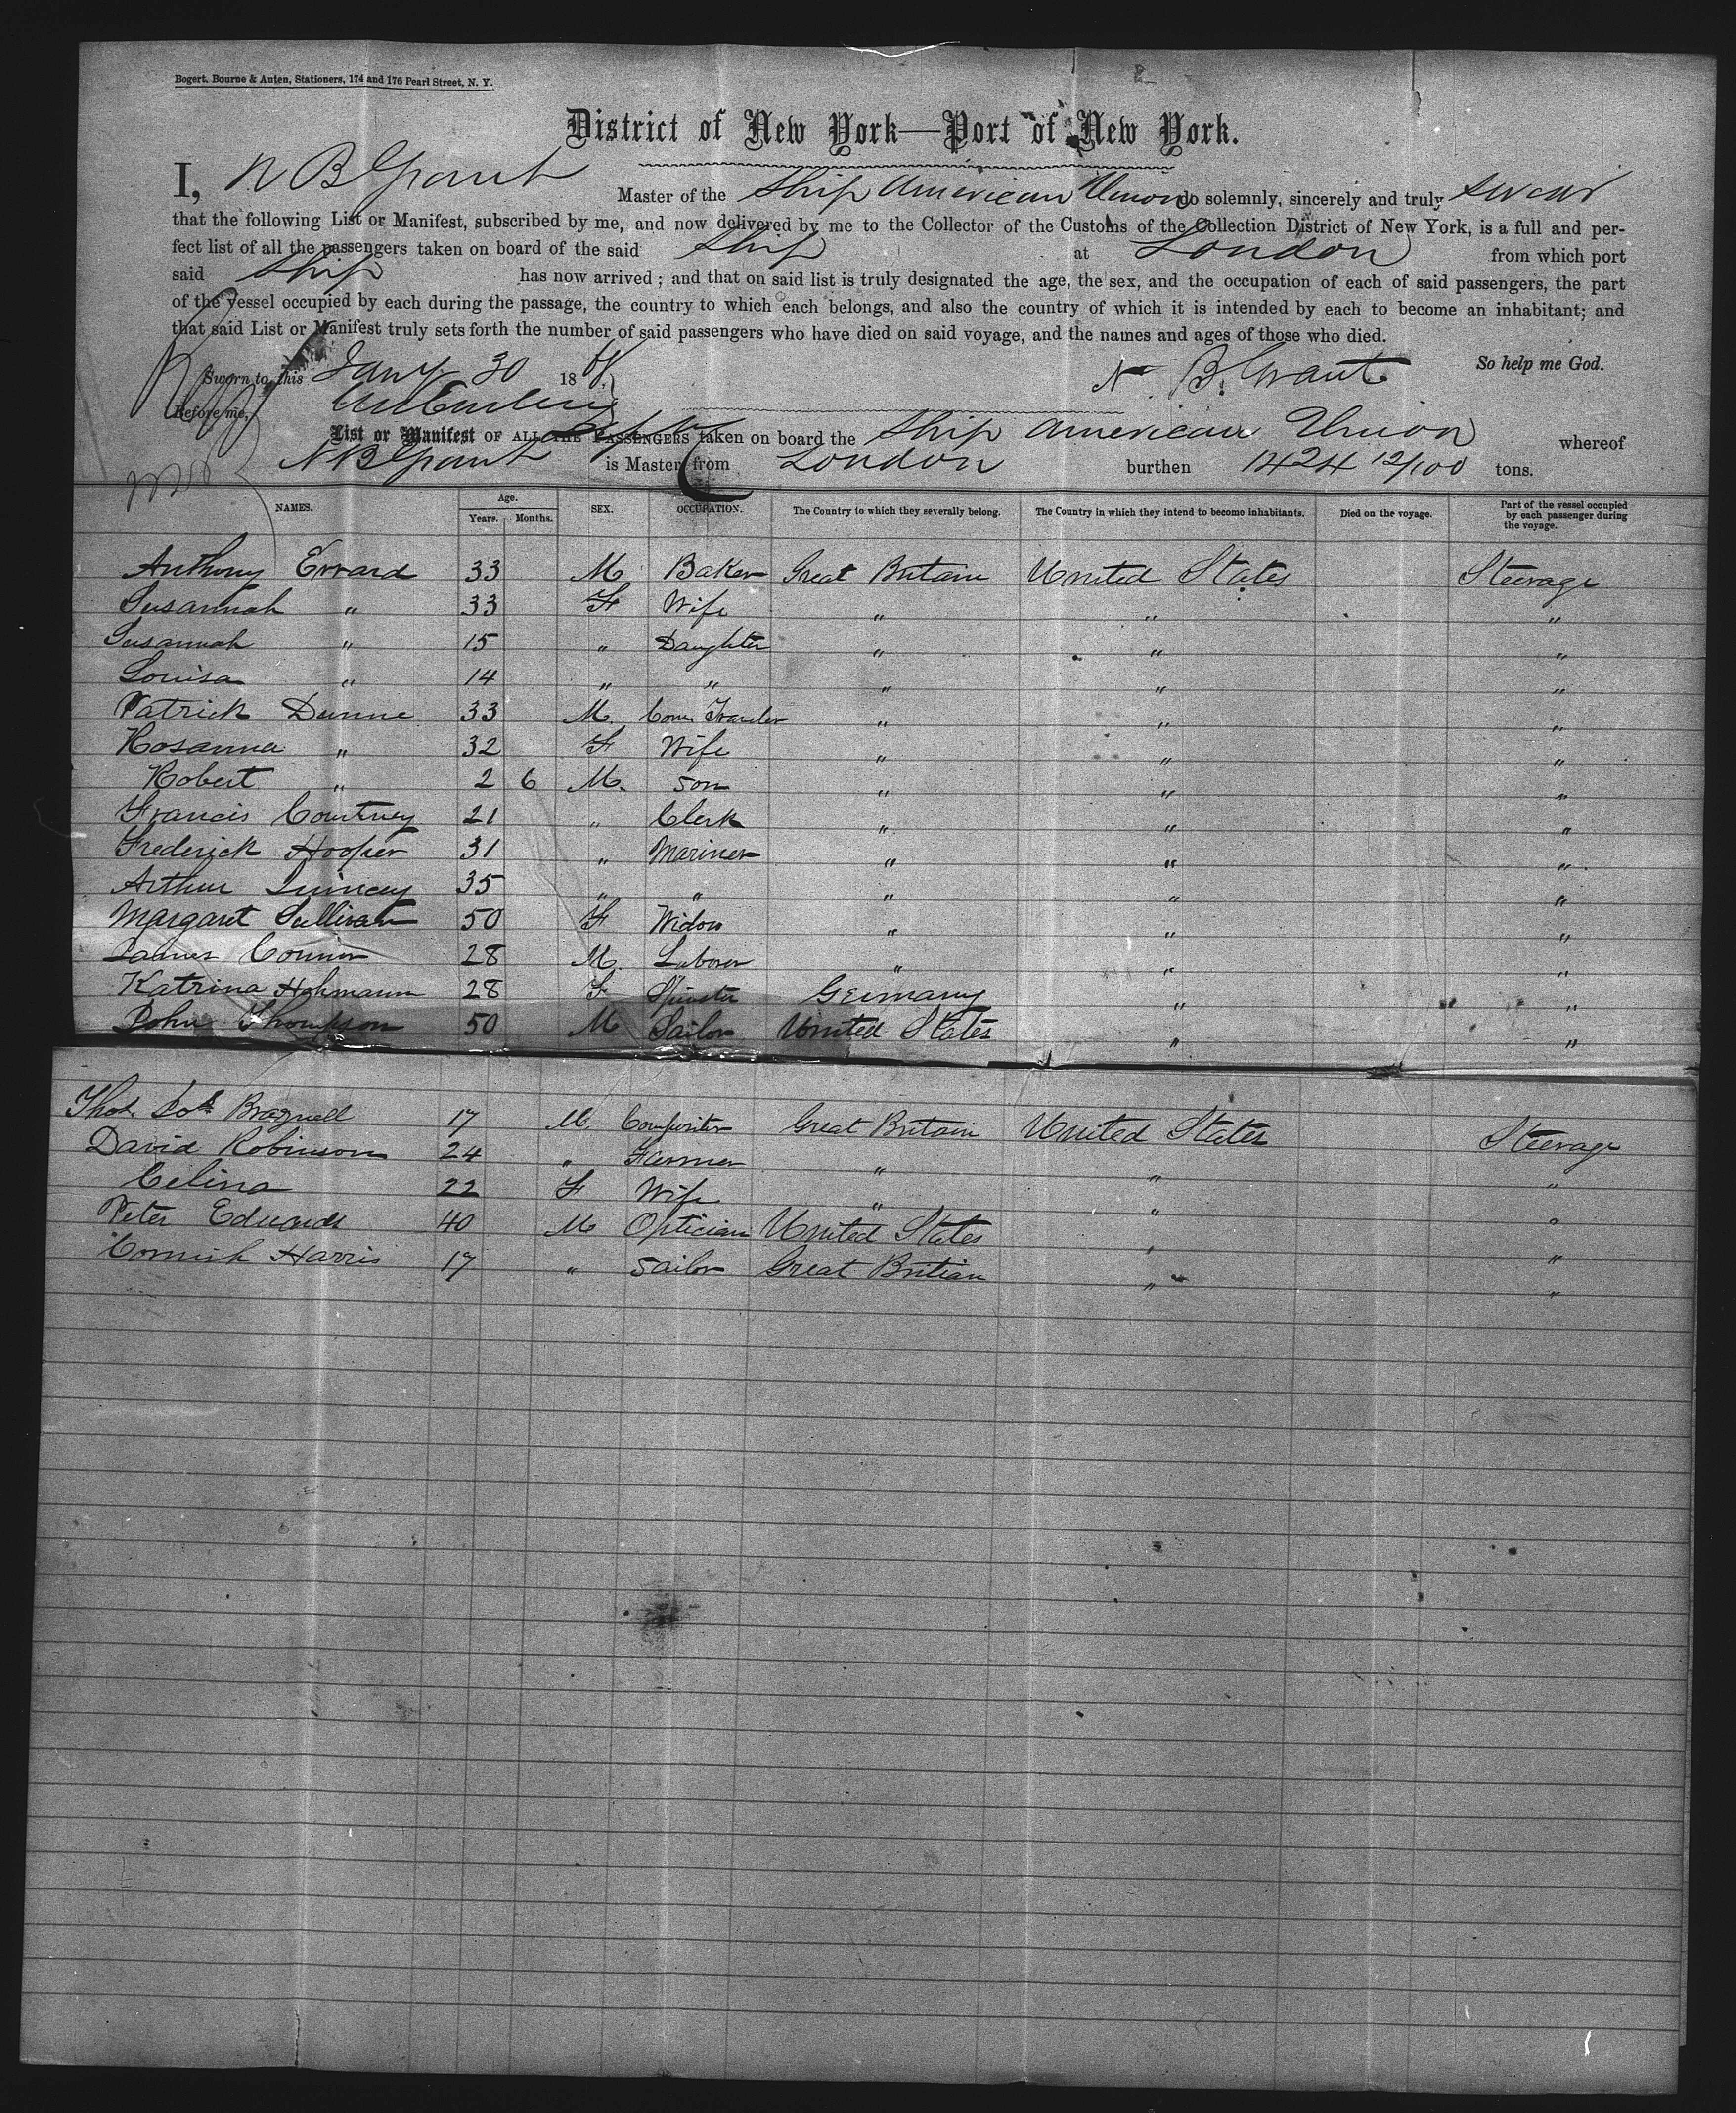 Bogert, Bourne & Auten, Stationers, 174 and 176 Pearl Street, N. Y.
District of New York—Port of New York.
I, N B Grant Master of the Ship American Union do solemnly, sincerely and truly swear
that the following List or Manifest, subscribed by me, and now delivered by me to the Collector of the Customs of the Collection District of New York, is a full and per-
fect list of all the passengers taken on board of the said Ship at London from which port
said Ship has now arrived; and that on said list is truly designated the age, the sex, and the occupation of each of said passengers, the part
of the vessel occupied by each during the passage, the country to which each belongs, and also the country of which it is intended by each to become an inhabitant; and
that said List or Manifest truly sets forth the number of said passengers who have died on said voyage, and the names and ages of those who died.
So help me God.
Sworn to, this Jany. 30 18 N. B. Grant
Before me,
List or Manifest OF ALL THE PASSENGERS taken on board the Ship American Union whereof
N B Grant is Master from London burthen 1424 12/100 tons.
NAMES. Age. Years. Months. SEX. OCCUPATION. The Country to which they severally belong. The Country in which they intend to become inhabitants. Died on the voyage. Part of the vessel occupied by each passenger during the voyage.
Anthony Errard 33 M Baker Great Britain United States Steerage
Susannah " 33 F Wife " " "
Susannah " 15 " Daughter " " "
Louisa " 14 " " " " "
Patrick Dunne 33 M Com. Traveler " " "
Rosanna " 32 F Wife " " "
Robert " 2 6 M. Son " " "
Francis Courtney 21 " Clerk " " "
Frederick Hooper 31 " Mariner " " "
Arthur Quincey 35 " " " " "
Margaret Sullivan 50 F Widow " " "
James Connor 28 M. Laborer " " "
Katrina Hohmann 28 F Spinster Germany " "
John Thompson 50 M Sailor United States " "
Thos. Jos. Bragnell 17 M. Compositor Great Britain United States Steerage
David Robinson 24 " Farmer " " "
Celina 22 F Wife " " "
Peter Edwards 40 M Optician United States " "
Cornish Harris 17 " Sailor Great Britian " "